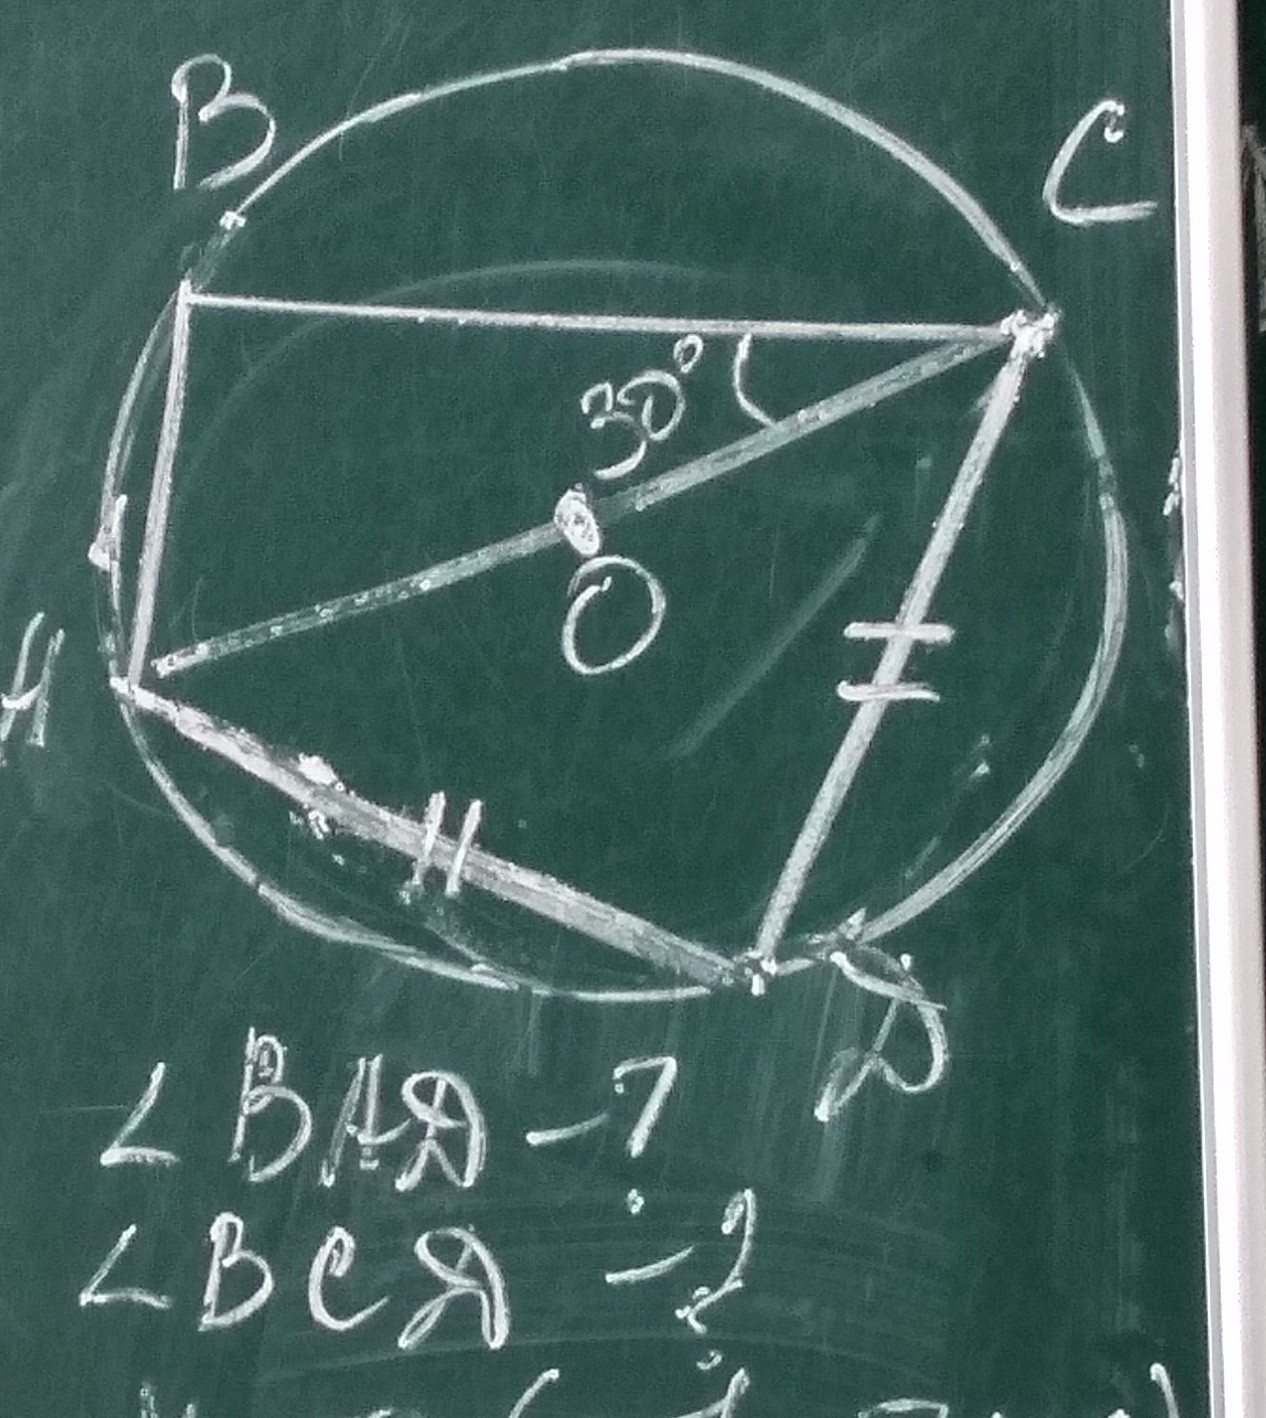 B
C
30°
O
A
D
∠ BAD - ?
∠ BCD - ?